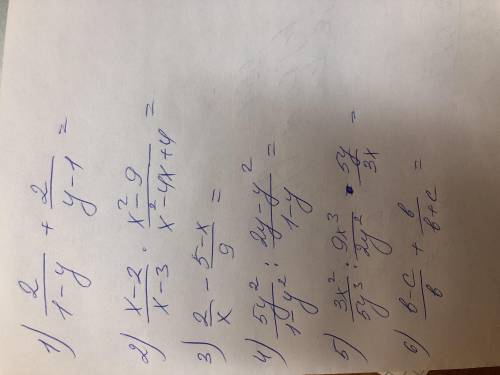 1) 2/(1-y) + 2/(y-1) =
2) (x-2)/(x-3) · (x²-9)/(x²-4x+4) =
3) 2/x - (5-x)/9 =
4) 5y²/(1-y²) : (2y-y²)/(1-y) =
5) 3x²/5y³ : 9x³/2y² · 5y/3x =
6) (b-c)/b + b/(b+c) =